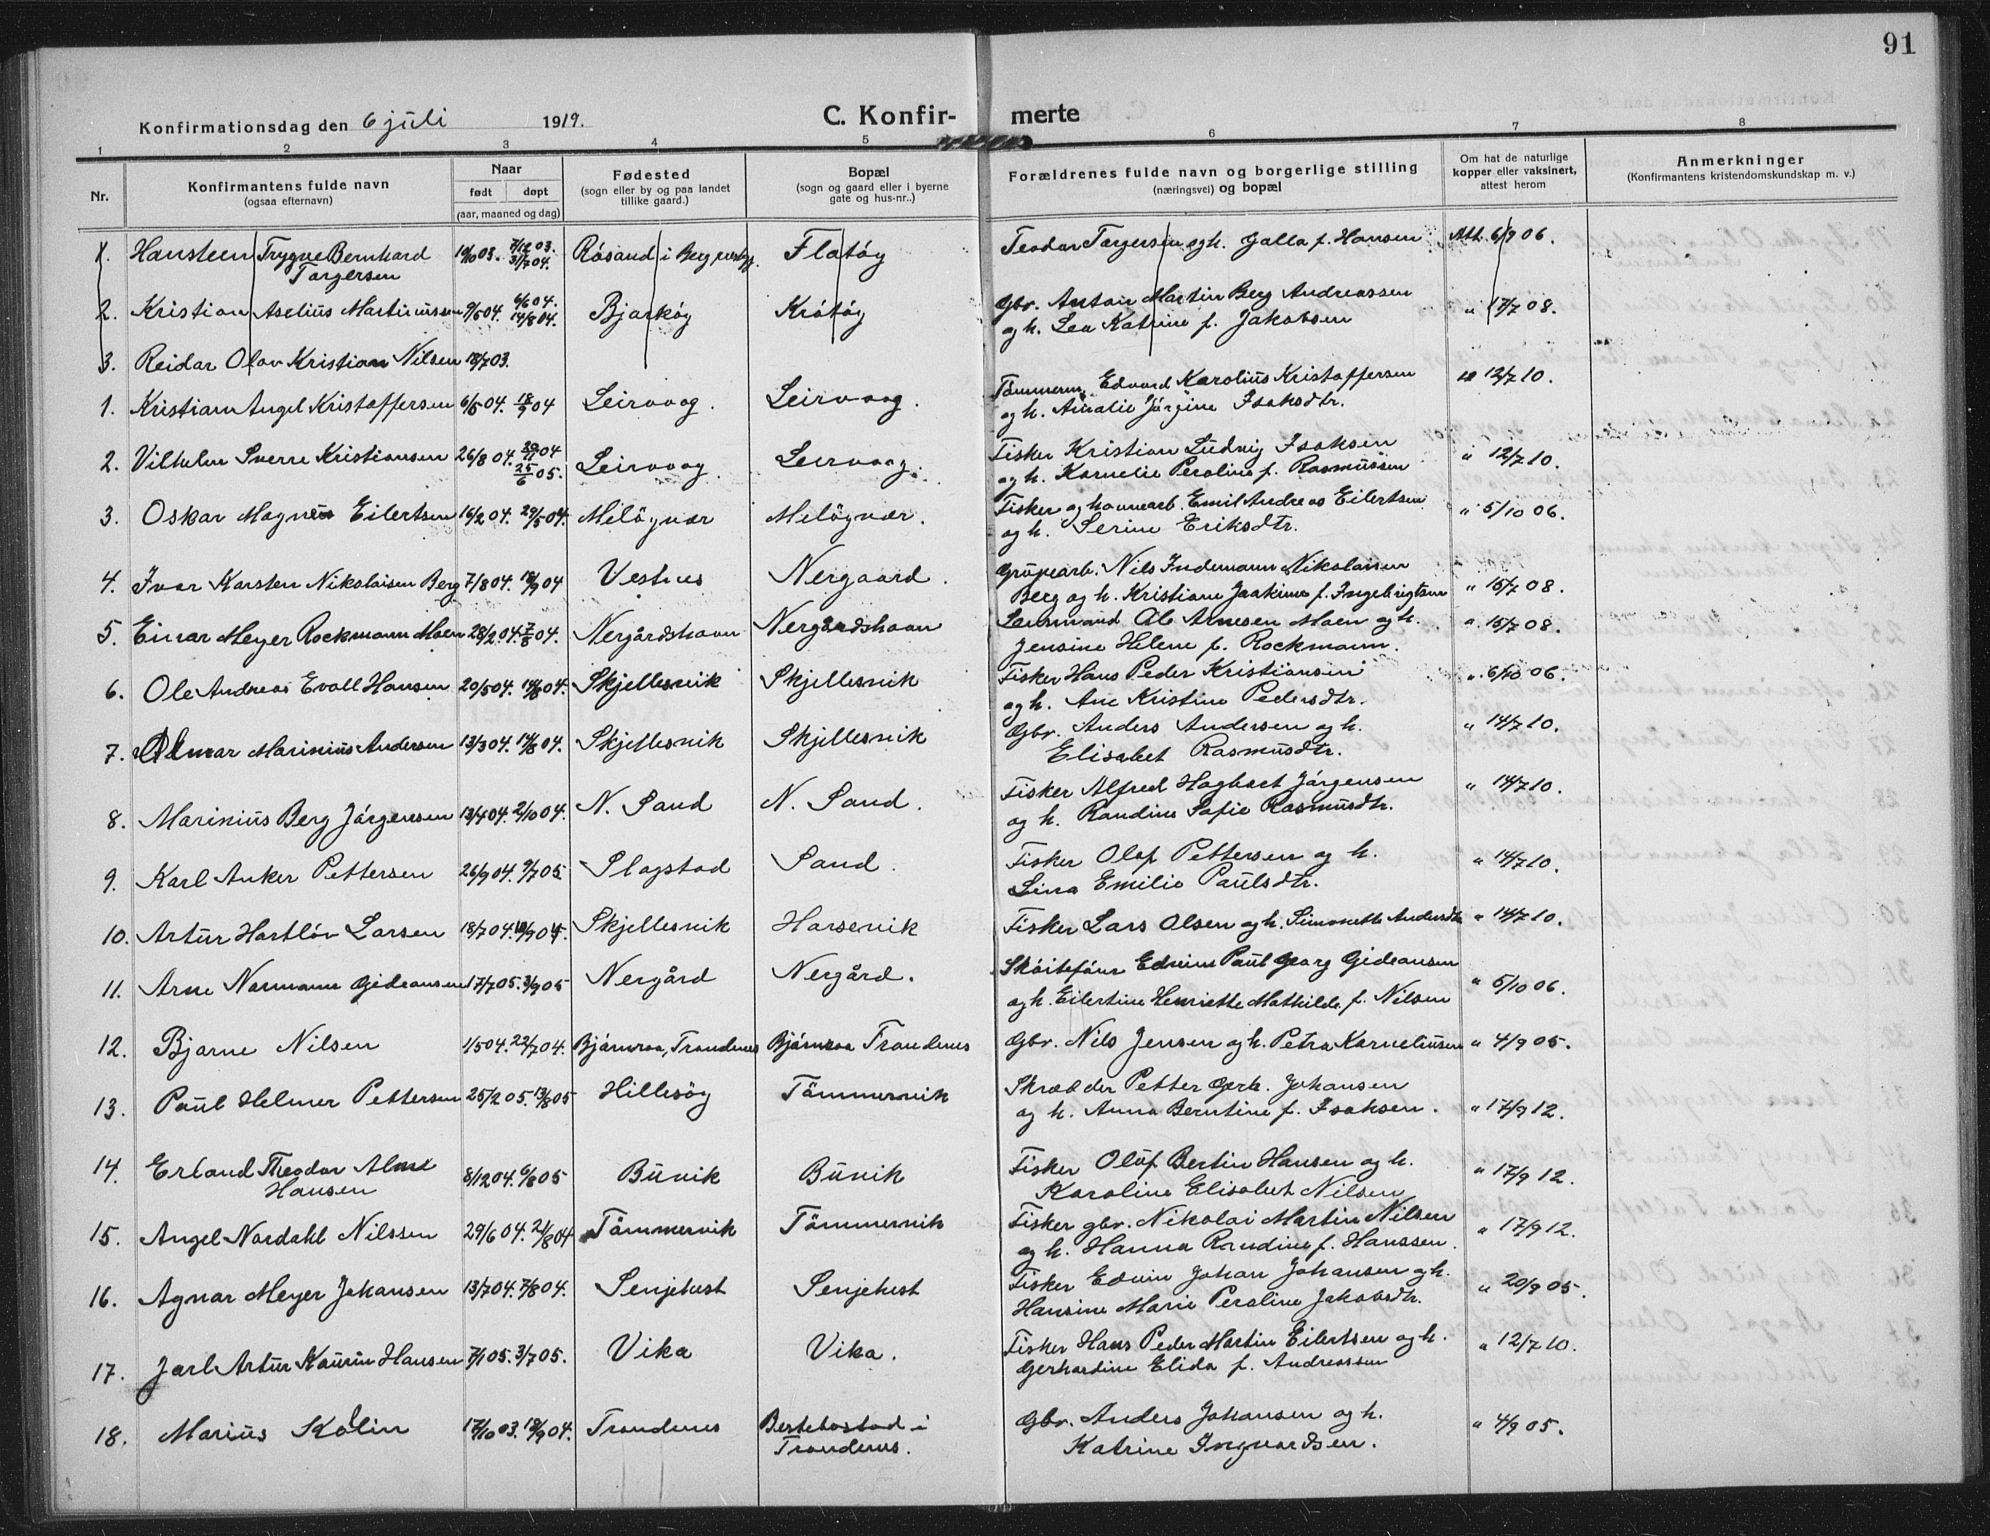 91
Konfirmationsdag den 6 juli 1919.
C. Konfir- merte
1 2 3 4 5 6 7 8
Nr.
Konfirmantens fulde navn
(ogsaa efternavn)
Naar
født døpt
(aar, maaned og dag)
Fødested
(sogn eller by og paa landet
tillike gaard.)
Bopæl
(sogn og gaard eller i byerne
gate og hus-nr..)
Forældrenes fulde navn og borgerlige stilling
(næringsvei) og bopæl
Om hat de naturlige
kopper eller vaksinert,
attest herom
Anmerkninger
(Konfirmantens kristendomskundskap m. v.)
1. Hansteen Trygve Bernhard 19/10 03. 7/12 03. Røsand i Berg Flatøy Teodor Torgersen og h. Jalla f. Hansen Att. 6/9 06.
Torgersen 31/7 04.
2. Kristian Aselius Martinussen 9/5 04. 6/6 04. Bjarkøy Krøtøy Gbr. Anton Martin Berg Andreassen " 17/7 08.
14/8 04. og h. Lea Katrine f. Jakobsen
3. Reidar Olav Kristian Nilsen 18/7 03.
1. Kristian Angel Kristoffersen 6/5 04. 18/9 04 Leirvaag. Leirvaag. Tømmerm. Edvard Karolius Kristoffersen " 12/7 10.
og h. Amalie Jørgine Isaksdtr.
2. Vilhelm Sverre Kristiansen 26/8 04. 29/11 04 Leirvaag. Leirvaag. Fisker Kristian Ludvig Isaksen " 12/7 10.
25/6 05. og h. Kornelie Peroline f. Rasmussen
3. Oskar Magnus Eilertsen 16/2 04. 29/5 04. Meløyvær Meløyvær. Fisker og havnearb. Emil Andreas Eilertsen " 5/10 06.
og h. Serine Eriksdtr.
4. Ivar Karsten Nikolaisen Berg 7/8 04. 18/9 04 Vestnes Nergaard. Grubearb. Nils Indemann Nikolaisen " 15/7 08.
Berg og h. Kristiane Jaakime f. Ingebrigtsen
5. Einar Meyer Rockmann Moen 28/2 04. 7/8 04. Nergårdshavn Nergårdshavn Ole Arnesen Moen og h. " 15/7 08.
Jensine Helene f. Rockmann.
6. Ole Andreas Evall Hansen 20/5 04. 14/8 04. Skjellesvik Skjellesvik Fisker Hans Peder Kristiansen " 6/10 06.
og h. Ane Kristine Pedersdtr.
7. Almar Marinius Andersen 13/3 04. 14/8 04. Skjellesvik Skjellesvik Gbr. Anders Andersen og h. " 14/7 10.
Elisabet Rasmusdtr.
8. Marinius Berg Jørgensen 13/4 04. 2/10 04. N. Sand N. Sand. Fisker Alfred Hagbart Jørgensen " 14/7 10.
og h. Randine Sofie Rasmusdtr.
9. Karl Anker Pettersen 26/9 04. 9/7 05 Slagstad Sand. Fisker Olaf Pettersen og h. " 14/7 10.
Lina Emilie Paulsdtr.
10. Artur Hartløv Larsen 18/7 04. 18/9 04. Skjellesvik Harsevik Fisker Lars Olsen og h. Simonette Andersdtr " 14/7 10.
11. Arne Normann Gideonsen 17/7 05. 3/9 05 Nergård Nergård. Skøitefører Edvin Paul Georg Gideonsen " 5/10 06.
og h. Eilertine Henriette Mathilde f. Nilsen
12. Bjarne Nilsen 1/5 04. 22/7 04. Bjørnraa, Trondenes Bjørnraa Trondenes Gbr. Nils Jensen og h. Petra Korneliussen " 4/9 05.
13. Paul Helmer Pettersen 25/2 05. 13/8 05 Hillesøy Tømmervik Skrædder Petter Gerh. Johansen " 17/9 12.
og h. Anna Berntine f. Isaksen.
14. Erland Theodor Alme 8/12 04. 6/8 05 Buvik Buvik Fisker Oluf Bertin Hansen og h. " 17/9 12.
Hansen Karoline Elisabet Nilsen
15. Angel Nordahl Nilssen 29/6 04. 21/8 04 Tømmervik Tømmervik Fisker gbr. Nikolai Martin Nilsen " 17/9 12.
og h. Hanna Randine f. Hanssen.
16. Agnar Meyer Johansen 13/7 04. 7/8 04. Senjehest Senjehest Fisker Edvin Johan Johansen og h. " 20/9 05.
Hansine Marie Peroline Jakobsdtr.
17. Jarl Artur Kaurin Hansen 7/1 05. 3/7 05. Vika Vika. Fisker Hans Peder Martin Eilertsen og h. " 12/7 10.
Gerhardine Elida f. Andreassen
18. Marius Kolin 17/10 03. 18/9 04. Trondenes Bertebostad i Gbr. Anders Johansen og h. " 4/9 05.
Trondenes. Katrine Ingvardsen.